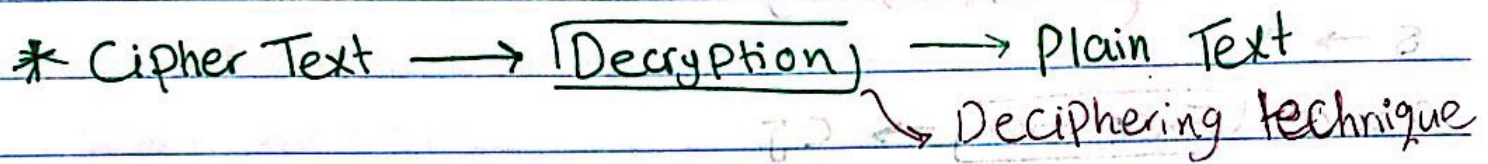 * Cipher Text → Decryption → Plain Text
↘ Deciphering technique